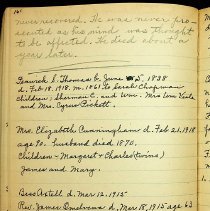 161
never recovered. He was never pro-
secuted as his mind was thought
to be affected. He died about a
year later.
Thomas C. June 25, 1838
d. Feb. 18, 1918. m. 1861 to Sarah Chapman
Children; Sherman C. and Wm. Mrs Wm
and Mrs. Cyrus Pickett.
Mrs. Elizabeth Cunningham d. Feb 21, 1918
age 90. husband died 1890.
Children - Margaret & Charles (twins)
James and Mary.
Astell d. Mar 12, 1915
Rev. James d. Mar 18, 1915 age 63